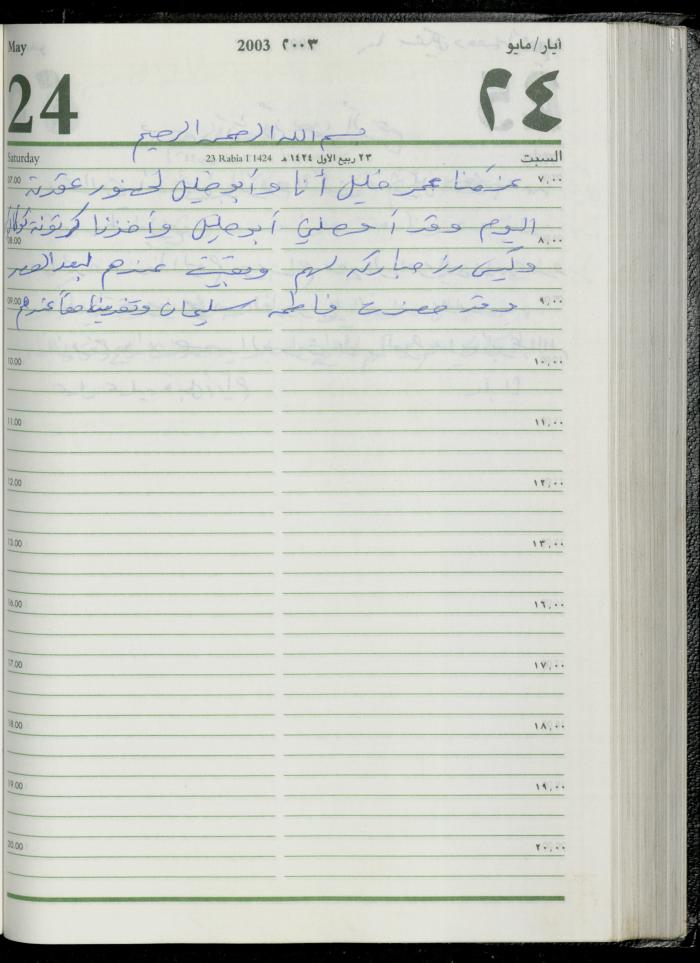 May 2003 ٢٠٠٣ أيار/مايو
24 ٢٤
بسم الله الرحمن الرحيم
Saturday 23 Rabia I 1424 ٢٣ ربيع الأول ١٤٢٤ هـ السبت
07.00 عزمنا عمر خليل أنا وأبو خليل لحضور عقدته ٧,٠٠
اليوم وقد أوصلني أبو خليل وأخذنا كرتونة كولا
08.00 ٨,٠٠
وكيس رز مباركه لهم وبقيت عندهم لبعد العصر
09.00 وقد حضرت فاطمه سليمان وتغدينا معاً عندهم ٩,٠٠
10.00 ١٠,٠٠
11.00 ١١,٠٠
12.00 ١٢,٠٠
15.00 ١٣,٠٠
16.00 ١٦,٠٠
17.00 ١٧,٠٠
18.00 ١٨,٠٠
19.00 ١٩,٠٠
20.00 ٢٠,٠٠